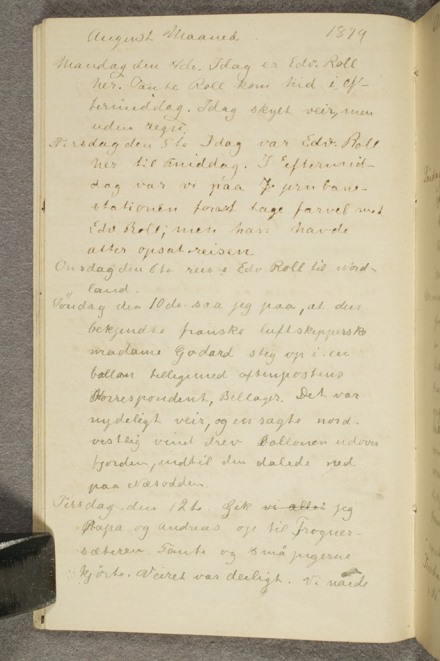 August Maaned. 1879
Mandag den 4de. Idag er Edv. Roll
her. Tante Roll kom hid i Ef-
termiddag. Idag skyet veir, men
uden regn.
Tirsdag den 5te Idag var Edv. Roll
her til middag. I Eftermid-
dag var vi paa Jernbane-
stationen forat tage farvel med
Edv Roll, men han havde
atter opsat reisen
Onsdag den 6te reiste Edv Roll til Nord-
land.
Søndag den 10de saa jeg paa, at den
bekjendte franske luftskipperske
madame Godard steg op i en
ballon tilligemed aftenpostens
Korrespondent, Bellager. Det var
nydeligt veir, og en sagte nord-
vestlig vind drev Ballonen udover
fjorden, indtil den dalede ned
paa Næsodden.
Tirsdag den 12te. Gik vi alle jeg
Papa og Andreas op til Frogner-
sæteren Tante og småpigerne
kjørte. Veiret var deiligt. Vi